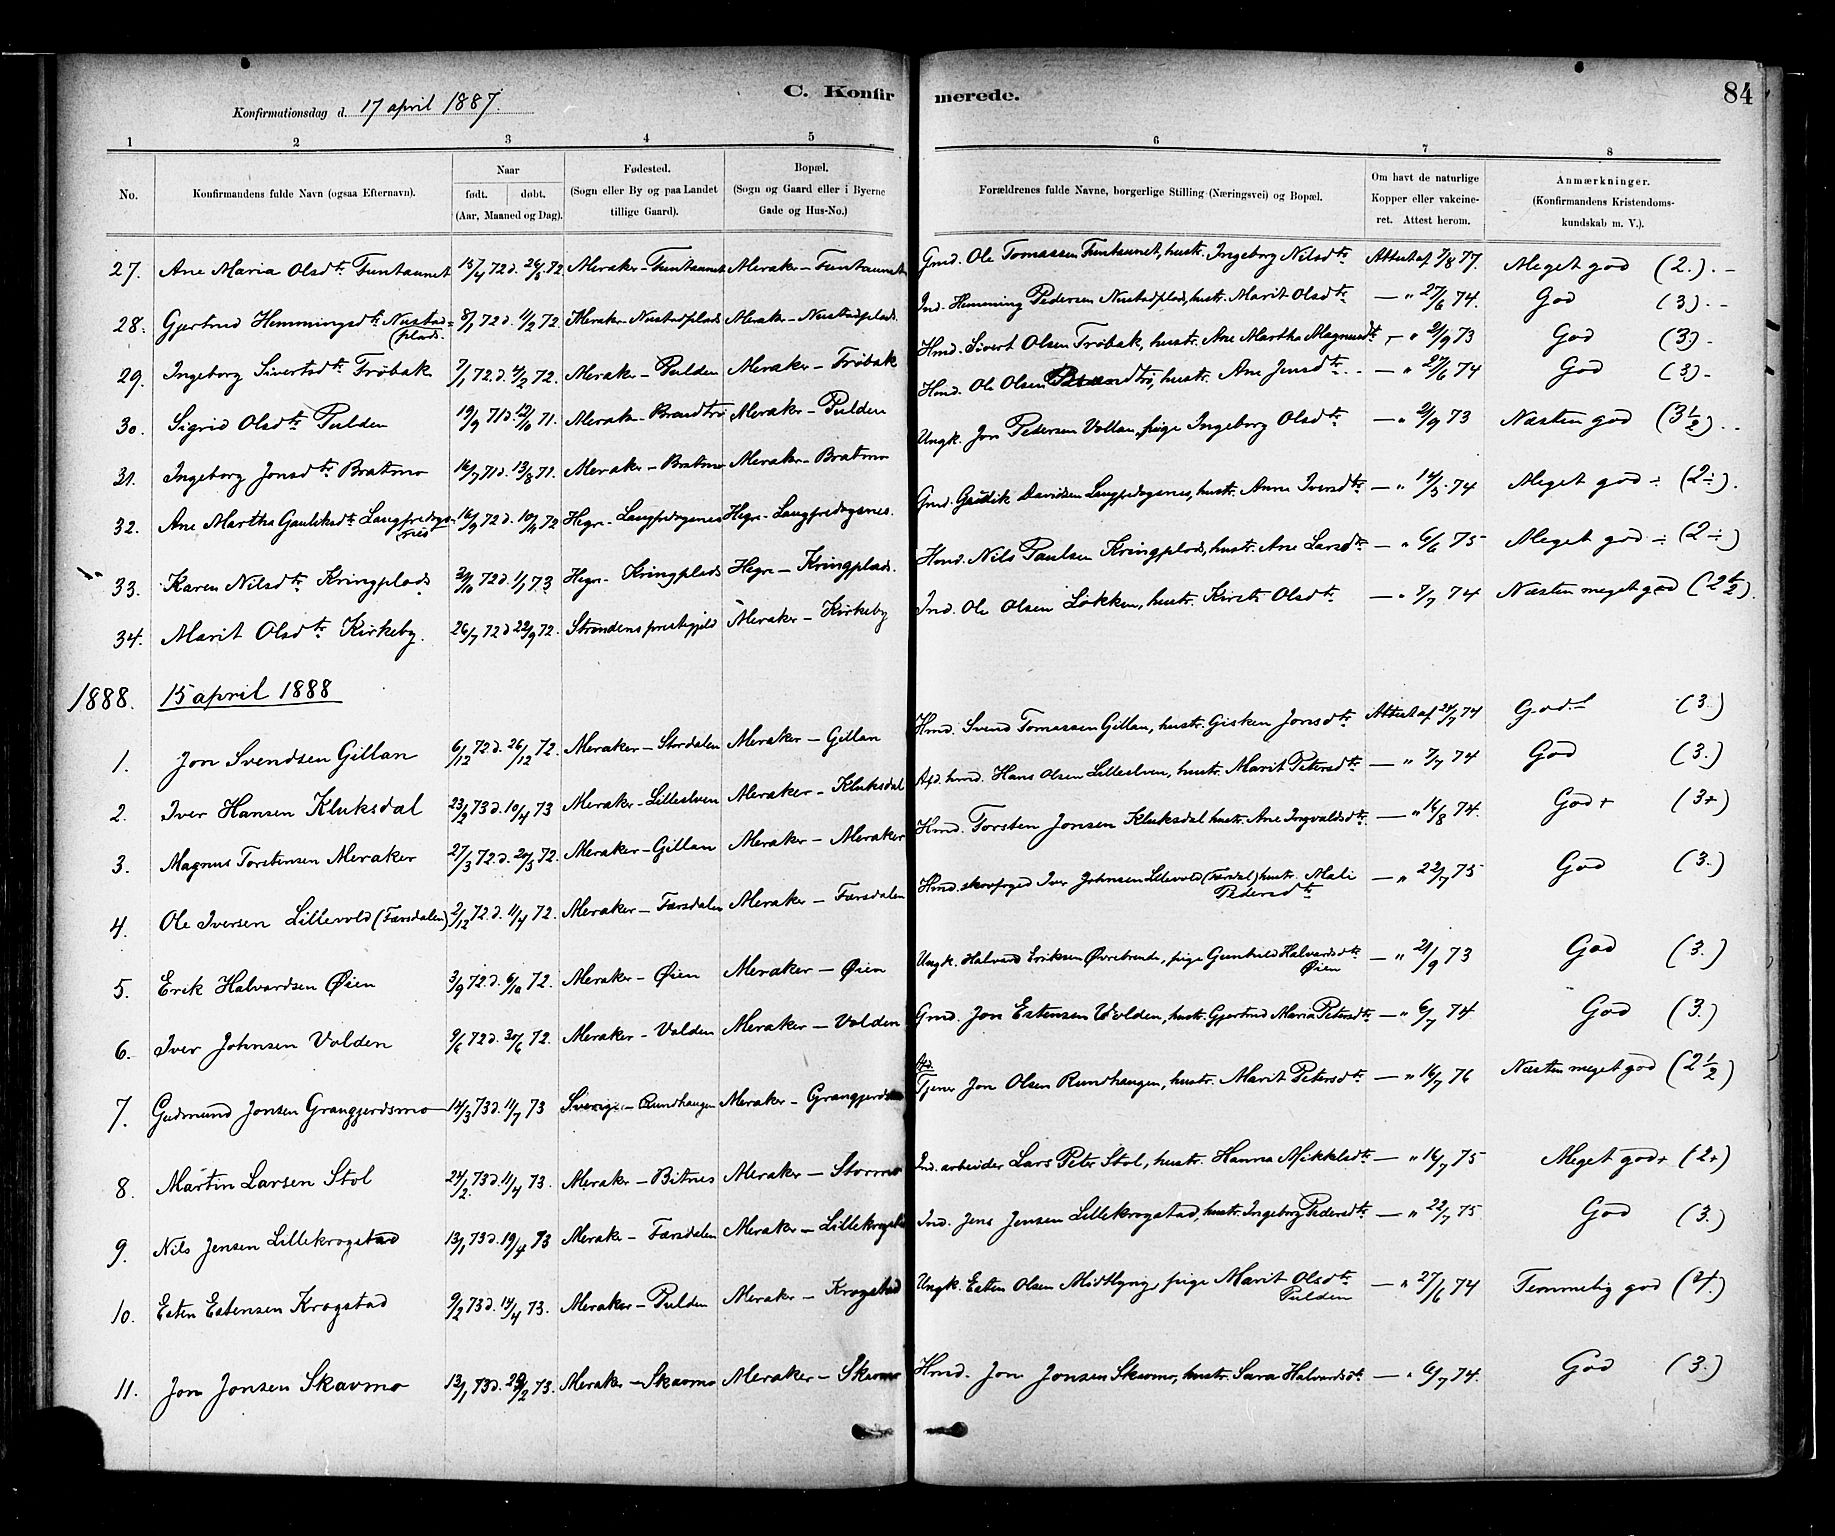 84
C. Konfirmerede.
Konfirmationsdag d. 17 april 1887.
1 2 3 4 5 6 7 8
No. Konfirmandens fulde Navn (ogsaa Efternavn). Naar født. døbt. (Aar, Maaned og Dag). Fødested. (Sogn eller By og paa Landet tillige Gaard). Bopæl. (Sogn og Gaard eller i Byerne Gade og Hus-No.) Forældrenes fulde Navne, borgerlige Stilling (Næringsvei) og Bopæl. Om havt de naturlige Kopper eller vakcineret. Attest herom. Anmærkninger. (Konfirmandens Kristendomskundskab m. V.).
27. Ane Maria Olsdtr. Funtaunet 15/4 72 d. 26/5 72 Meraker – Funtaunet Meraker – Funtaunet Gmd. Ole Tomassen Funtaunet, hustr. Ingeborg Nilsdtr. Attest af 7/8 77. Meget god (2.). –
28. Gjertrud Hemmingsdtr. Nustadplads. 8/1 72 d. 11/2 72. Meraker – Nustadplads Meraker – Nustadplads. Ind. Hemming Pedersen Nustadplads, hustr. Marit Olsdtr. – " 27/6 74. God (3). –
29. Ingeborg Sivertsdtr. Frøbak 7/1 72 d. 4/2 72. Meraker – Pulden Meraker – Frøbak Hmd. Sivert Olsen Frøbak, hustr. Ane Martha Magnusdtr. – " 2/9 73 God (3) –
30. Sigrid Olsdtr. Pulden 19/9 71 d. 12/10 71. Meraker – Brandtrø Meraker – Pulden Hmd. Ole Olsen Brandtrø, hustr. Ane Jensdtr. – " 27/6 74 God (3) –
31. Ingeborg Jonsdtr. Bratmo 16/7 71 d. 13/8 71. Meraker – Bratmo Meraker – Bratmo Ungk. Jon Pedersen Vollan, pige Ingeborg Olsdtr. – " 2/9 73 Næsten god (3 1/2). –
32. Ane Martha Gauliksdtr. Langfredagsnes 16/9 72 d. 10/11 72 Hegre – Langfredagsnes Hegre – Langfredagsnes. Gmd. Davidsen Langfredagsnes, hustr. Anne Iversdtr. – " 14/5 74 Meget god ÷ (2 ÷).
33. Karen Nilsdtr. Kringplads /10 72 d. 1/1 73 Hegre – Kringplads Hegre – Kringplads. Hmd. Nils Paulsen Kringplads, hustr. Ane Larsdtr. – " 6/6 75 Meget god ÷ (2 ÷)
34. Marit Olsdtr. Kirkeby. 26/7 72 d. 22/9 72. Strandens prestegjeld Meraker – Kirkeby Ind. Ole Olsen Løkken, hustr. Kirsti Olsdtr. – " 7/7 74 Næsten meget god (2 1/2).
1888. 15 april 1888
1. Jon Svendsen Gillan 6/12 72 d. 26/12 72. Meraker – Stordalen Meraker – Gillan Hmd. Svend Tomassen Gillan, hustr. Gisken Jonsdtr. Attest af 24/7 74 God (3.)
2. Iver Hansen Kluksdal 23/2 73 d. 10/4 73 Meraker – Lilleelven Meraker – Kluksdal Afd. hmd. Hans Olsen Lilleelven, hustr. Marit Petersdtr. – " 7/7 74 God (3.)
3. Magnus Torstensen Meraker 27/3 72. d. 20/5 72. Meraker – Gillan Meraker – Meraker Hmd. Torsten Jonsen Kluksdal hustr. Ane Ingvaldsdtr. – " 16/8 74. God + (3+)
4. Ole Iversen Lillevold (Færsdalen) 2/12 72 d. 11/4 72. Meraker – Færsdalen Meraker – Færsdalen Hmd. skovfoged Iver Johnsen Lillevold (Færsdal) hustr. Mali Pedersdtr. – " 22/7 75 God (3.)
5. Erik Halvardsen Øien 3/9 72 d. 6/10 72. Meraker – Øien Meraker – Øien Ungk. Halvard Eriksen Øvrebrenta, pige Gunhild Halvardsdtr. Øien – " 21/9 73 God (3.)
6. Iver Johnsen Volden 9/6 72 d. 30/6 72. Meraker – Volden Meraker – Volden Gmd. Jon Estensen Volden, hustr. Gjertrud Maria Petersdtr. – " 6/7 74 God (3.)
7. Gudmund Jonsen Grangjerdsmo 14/3 73 d. 11/7 73 Sverige – Rundhaugen Meraker – Grangjerdsmo Afd. Tjener Jon Olsen Rundhaugen, hustr. Marit Petersdtr. – " 16/7 76 Næsten meget god (2 1/2)
8. Martin Larsen Stol 24/2 73 d. 11/4 73. Meraker – Bitnes Meraker – Stormo Ind. arbeider Lars Peter Stol, hustr. Hanna Mikkelsdtr. – " 16/7 75 Meget god + (2+)
9. Nils Jensen Lillekrogstad 13/1 73 d. 19/4 73 Meraker – Færsdalen Meraker – Lillekrogstad Ind. Jens Jensen Lillekrogstad, hustr. Ingeborg Pedersdtr. – " 22/7 75 God (3.)
10. Esten Estensen Krogstad 9/2 73 d. 14/4 73. Meraker – Pulden Meraker – Krogstad Ungk. Esten Olsen Midtlyng, pige Marit Olsdtr. Pulden – " 27/6 74 Temmelig god (4.)
11. Jon Jonsen Skavmo 13/1 73 d. 23/2 73. Meraker – Skavmo Meraker – Skavmo Hmd. Jon Jonsen Skavmo, hustr. Sara Halvardsdtr. – " 6/7 74. God (3.)